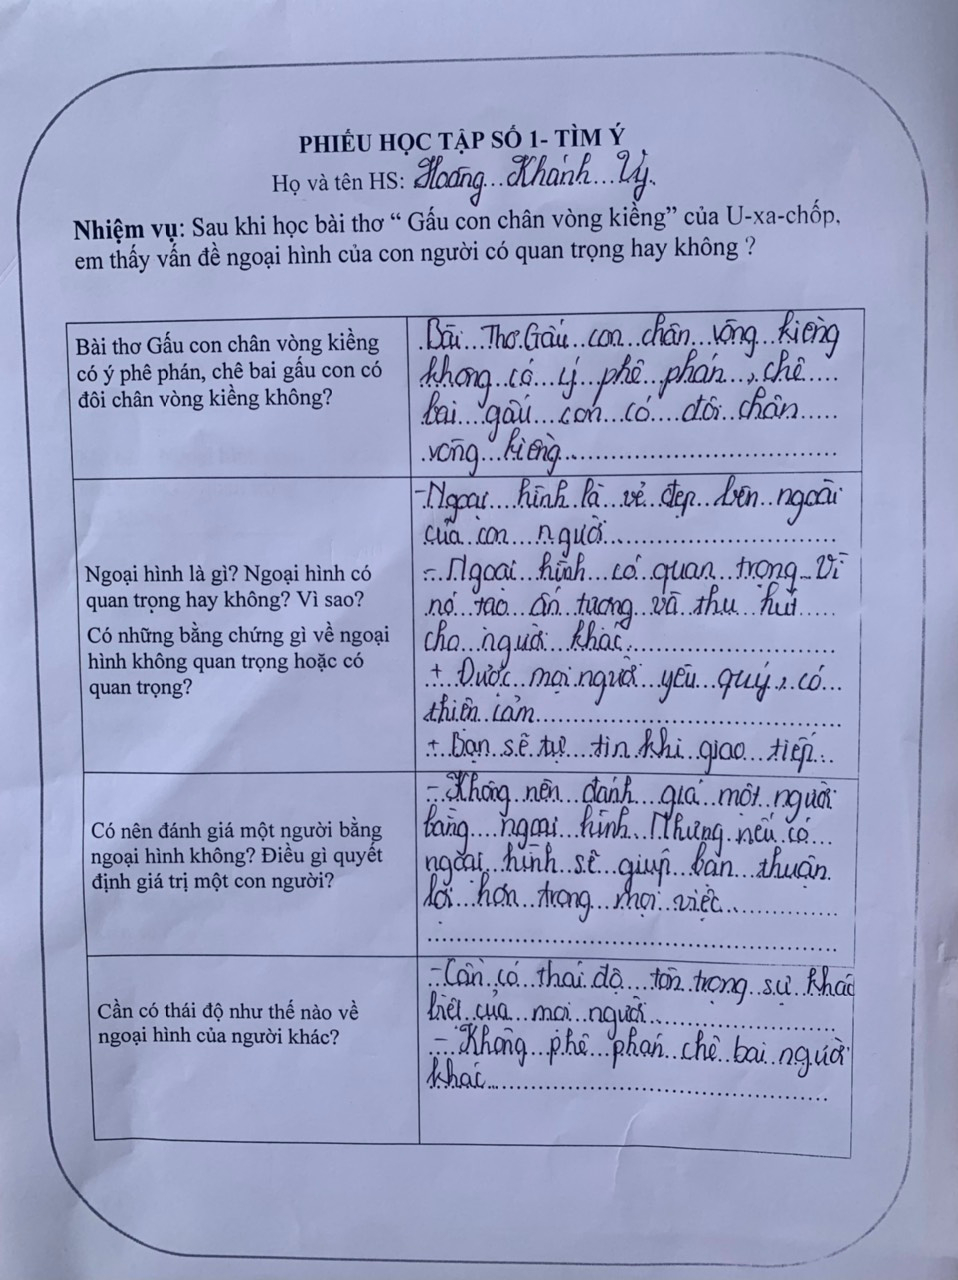 PHIẾU HỌC TẬP SỐ 1- TÌM Ý
Họ và tên HS: Hoàng Khánh Vy.
Nhiệm vụ: Sau khi học bài thơ “ Gấu con chân vòng kiềng” của U-xa-chốp,
em thấy vấn đề ngoại hình của con người có quan trọng hay không ?
Bài thơ Gấu con chân vòng kiềng
có ý phê phán, chê bai gấu con có
đôi chân vòng kiềng không?
Bài Thơ Gấu con chân vòng kiềng
không có ý phê phán, chê
bai gấu con có đôi chân
vòng kiềng
Ngoại hình là gì? Ngoại hình có
quan trọng hay không? Vì sao?
Có những bằng chứng gì về ngoại
hình không quan trọng hoặc có
quan trọng?
- Ngoại hình là vẻ đẹp bên ngoài
của con người
- Ngoại hình có quan trọng Vì
nó tạo ấn tượng và thu hút
cho người khác
+ Được mọi người yêu quý, có
thiện cảm
+ Bạn sẽ tự tin khi giao tiếp
Có nên đánh giá một người bằng
ngoại hình không? Điều gì quyết
định giá trị một con người?
- Không nên đánh giá một người
bằng ngoại hình. Nhưng nếu có
ngoại hình sẽ giúp bạn thuận
lợi hơn trong mọi việc
Cần có thái độ như thế nào về
ngoại hình của người khác?
- Cần có thái độ tôn trọng sự khác
biệt của mọi người
- Không phê phán chê bai người
khác